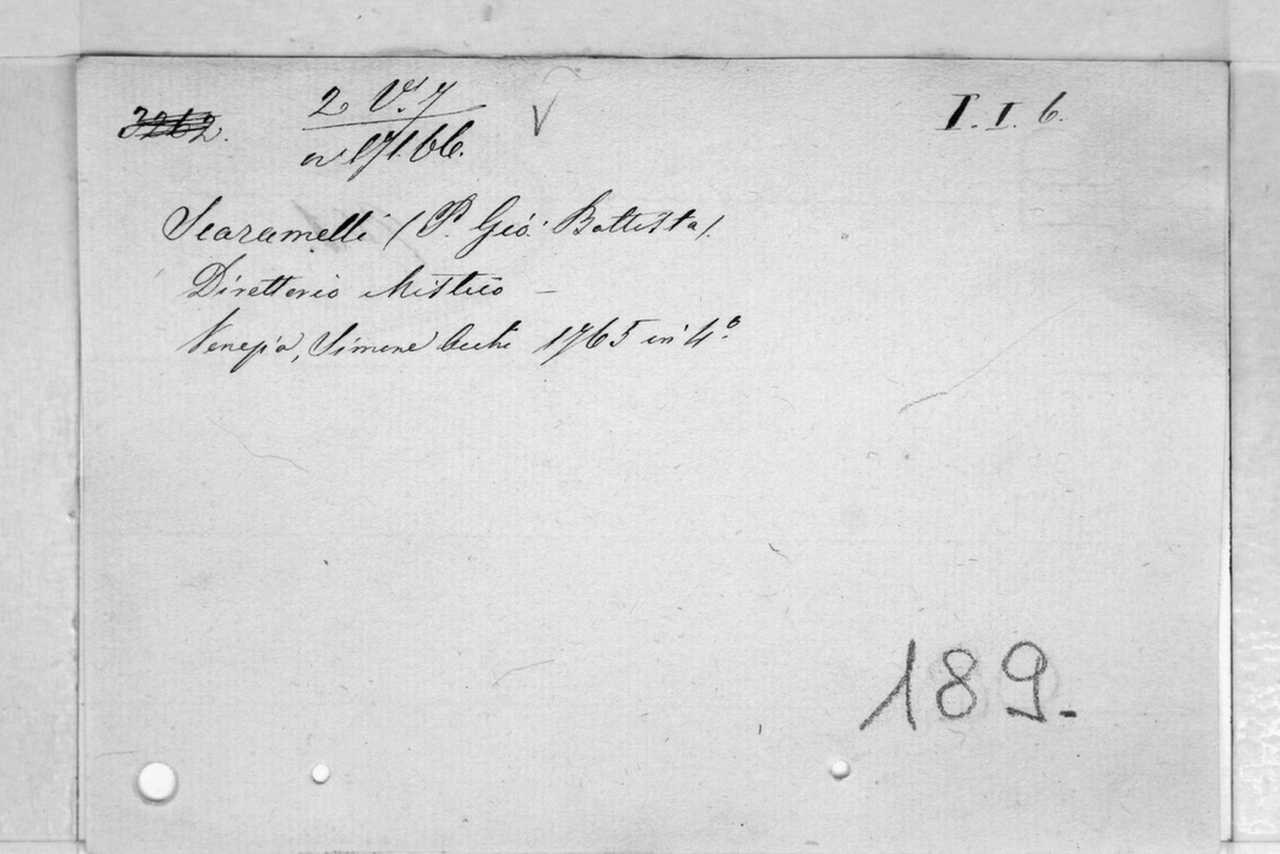 3262. 2 V. 7 V I. I. 6.
171.66.
Scaramelli (P. Gio: Battista).
Direttorio Mistico –
Venezia, Simone Occhi 1765 in 4º.
189.